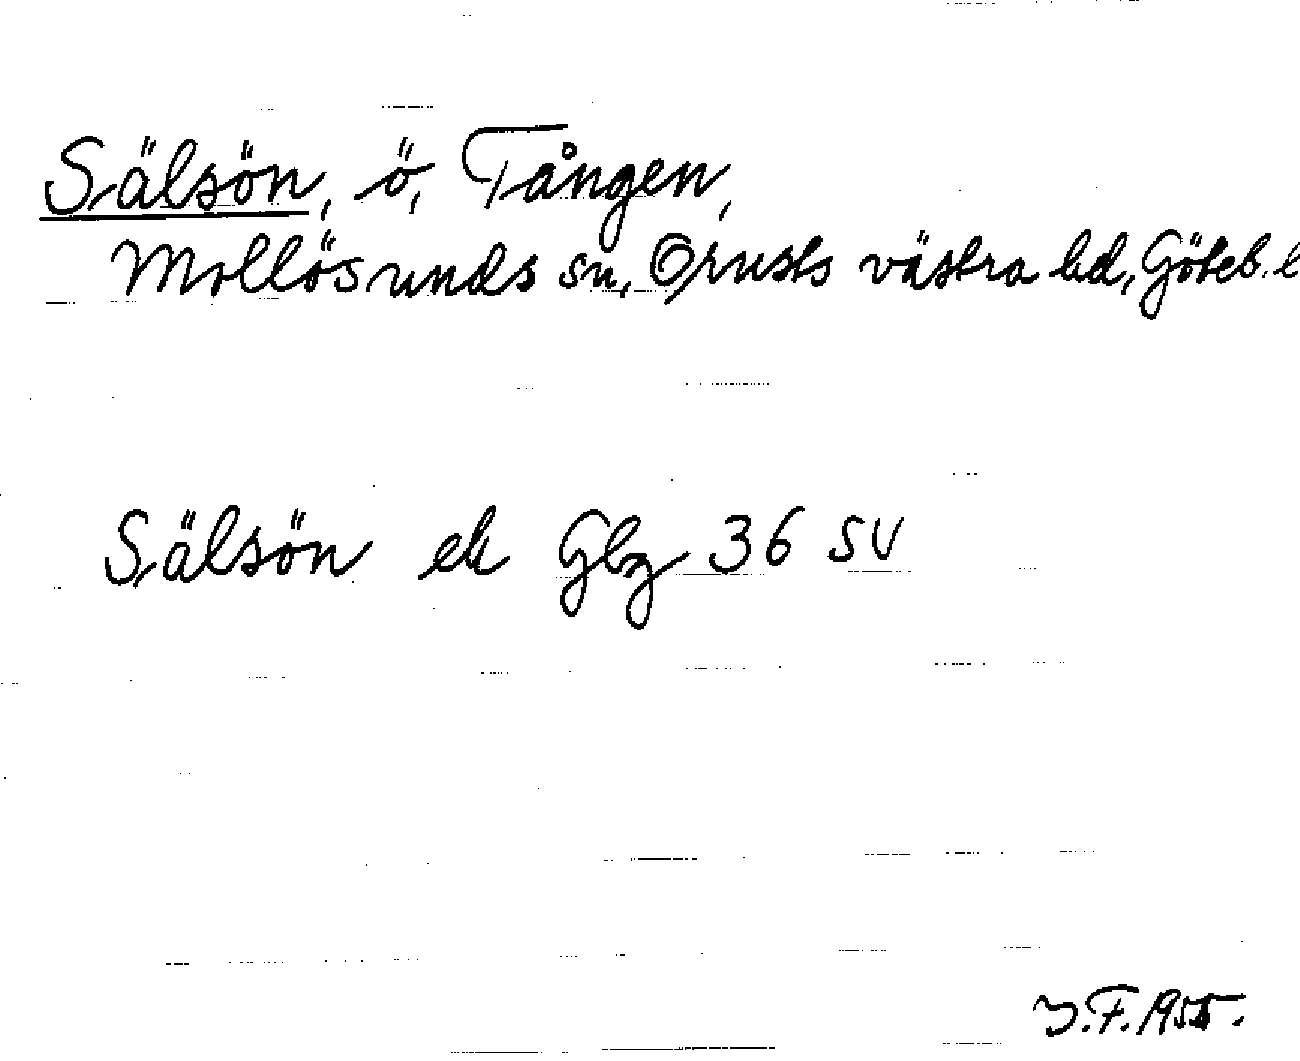 Sälsön, ö, Tången,
Mollösunds sn, Orusts västra hd, Göteb. l
Sälsön ek Gbg 36 SV
J.F. 1955.